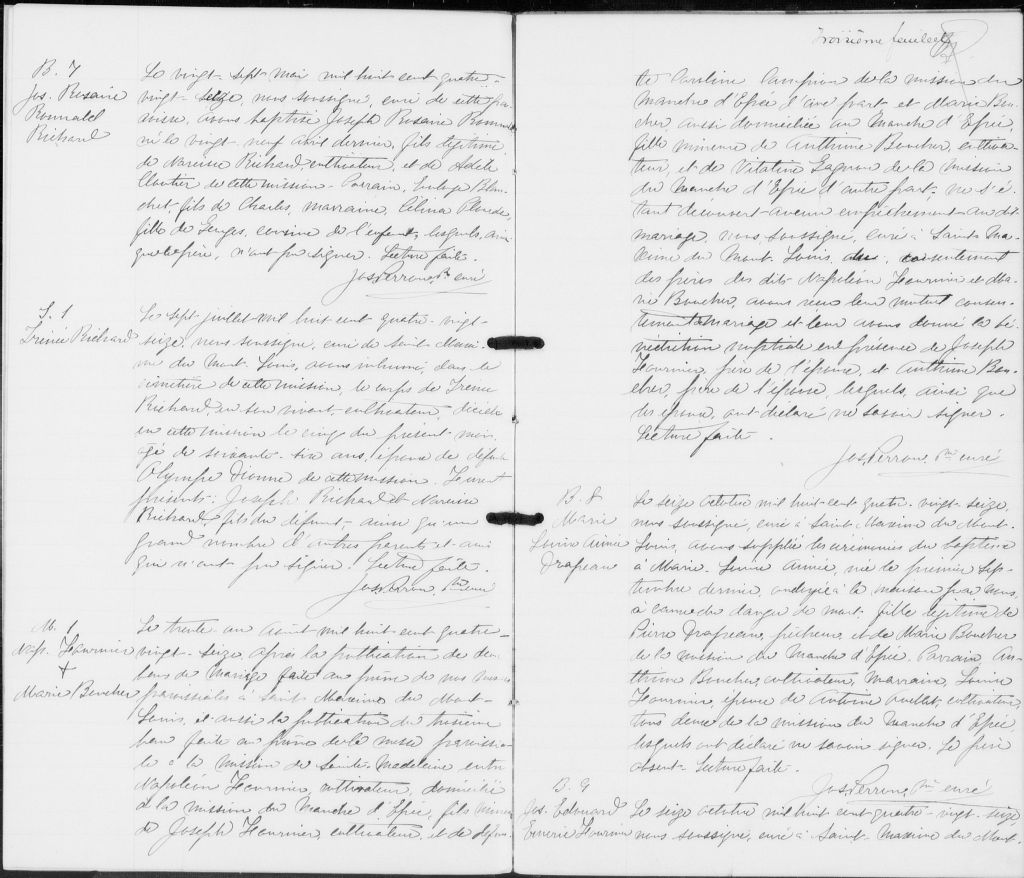 B. 7
Jos. Rosario
Romuald
Richard
Le vingt-sept mai mil huit cent quatre-
vingt-seize, nous soussigné, curé de cette pa-
roisse, avons baptisé Joseph Rosario Romuald
né le vingt-neuf avril dernier, fils légitime
de Narcisse Richard, cultivateur, et de Adèle
Cloutier de cette mission. Parrain, Blan-
chet, fils de Charles, marraine, Célina Plourde,
fille de Georges, cousine de l'enfant, lesquels, ainsi
que le père, n'ont pu signer. Lecture faite.
Jos. Perron, Ptre curé
S. 1
Irénée Richard
Le sept juillet mil huit cent quatre-vingt-
seize, nous soussigné, curé de Saint Maxi-
me du Mont Louis, avons inhumé, dans le
cimetière de cette mission, le corps de Irénée
Richard, en son vivant cultivateur, décédé
en cette mission le cinq du présent mois,
âgé de soixante-six ans, époux de défunte
Olympe Dionne de cette mission. Furent
présents; Joseph Richard et Narcisse
Richard, fils du défunt, ainsi qu'un
grand nombre d'autres parents et amis
qui n'ont pu signer. Lecture faite.
Jos. Perron, Ptre curé
M. 1
Nap. Fournier
+
Marie Boucher
Le trente un août mil huit cent quatre-
vingt-seize, après la publication de deux
bans de mariage faite au prône de nos messes
paroissiales à Saint Maxime du Mont-
Louis, et aussi la publication du troisième
ban faite au prône de la messe paroissia-
le à la mission de Sainte-Madeleine entre
Napoléon Fournier, cultivateur, domicilié
à la mission du Manche d'Epée, fils mineur
de Joseph Fournier, cultivateur, et de défun-
Troisième feuillet
te Caroline Campion de la mission du
Manche d'Epée d'une part et Marie Bou-
cher, aussi domiciliée au Manche d'Epée,
fille mineure de Anthime Boucher, cultiva-
teur, et de Vitaline Gagnon de la mission
du Manche d'Epée d'autre part; ne s'é-
tant découvert aucun empêchement au dit
mariage, nous soussigné, curé à Saint Ma-
xime du Mont Louis, du consentement
des pères des dits Napoléon Fournier et Ma-
rie Boucher, avons reçu leur mutuel consen-
tement de mariage et leur avons donné la bé-
nédiction nuptiale en présence de Joseph
Fournier, père de l'époux, et Anthime Bou-
cher, père de l'épouse, lesquels, ainsi que
les époux, ont déclaré ne savoir signer.
Lecture faite.
Jos. Perron, Ptre curé
B. 8
Marie
Louise Aimée
Drapeau
Le seize octobre mil huit cent quatre-vingt-seize,
nous soussigné, curé à Saint Maxime du Mont-
Louis, avons suppléé les cérémonies du baptême
à Marie Louise Aimée, née le premier sep-
tembre dernier, ondoyée à la maison par nous
à cause du danger de mort, fille légitime de
Pierre Drapeau, pêcheur, et de Marie Boucher
de la mission du Manche d'Epée. Parrain, An-
thime Boucher, cultivateur, Marraine, Louise
Fournier, épouse de Antoine Ouellet, cultivateur,
tous deux de la mission du Manche d'Epée,
lesquels ont déclaré ne savoir signer. Le père
absent. Lecture faite.
Jos. Perron, Ptre curé
B. 9
Jos. Edouard
Fournier
Le seize octobre mil huit cent quatre-vingt-seize
nous soussigné, curé à Saint-Maxime du Mont-